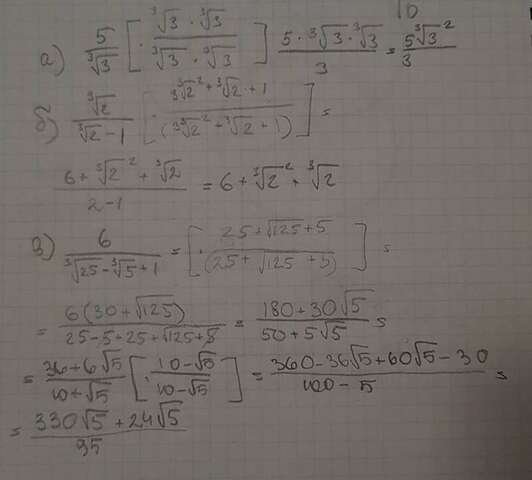 10
а) 5/∛3 [· ∛3 · ∛3 / ∛3 · ∛3] 5 · ∛3 · ∛3 / 3 = 5∛3² / 3
б) ∛2 / ∛2 - 1 [· 3∛2² + ∛2 · 1 / (3∛2² + ∛2 + 1)] =
6 + ∛2² + ∛2 / 2 - 1 = 6 + ∛2² + ∛2
в) 6 / ∛25 - ∛5 + 1 = [· 25 + √125 + 5 / (25 + √125 + 5)] =
= 6(30 + √125) / 25 - 5 + 25 + √125 + 5 = 180 + 30√5 / 50 + 5√5 =
= 36 + 6√5 / 10 + √5 [· 10 - √5 / 10 - √5] = 360 - 36√5 + 60√5 - 30 / 100 - 5 =
= 330√5 + 24√5 / 95